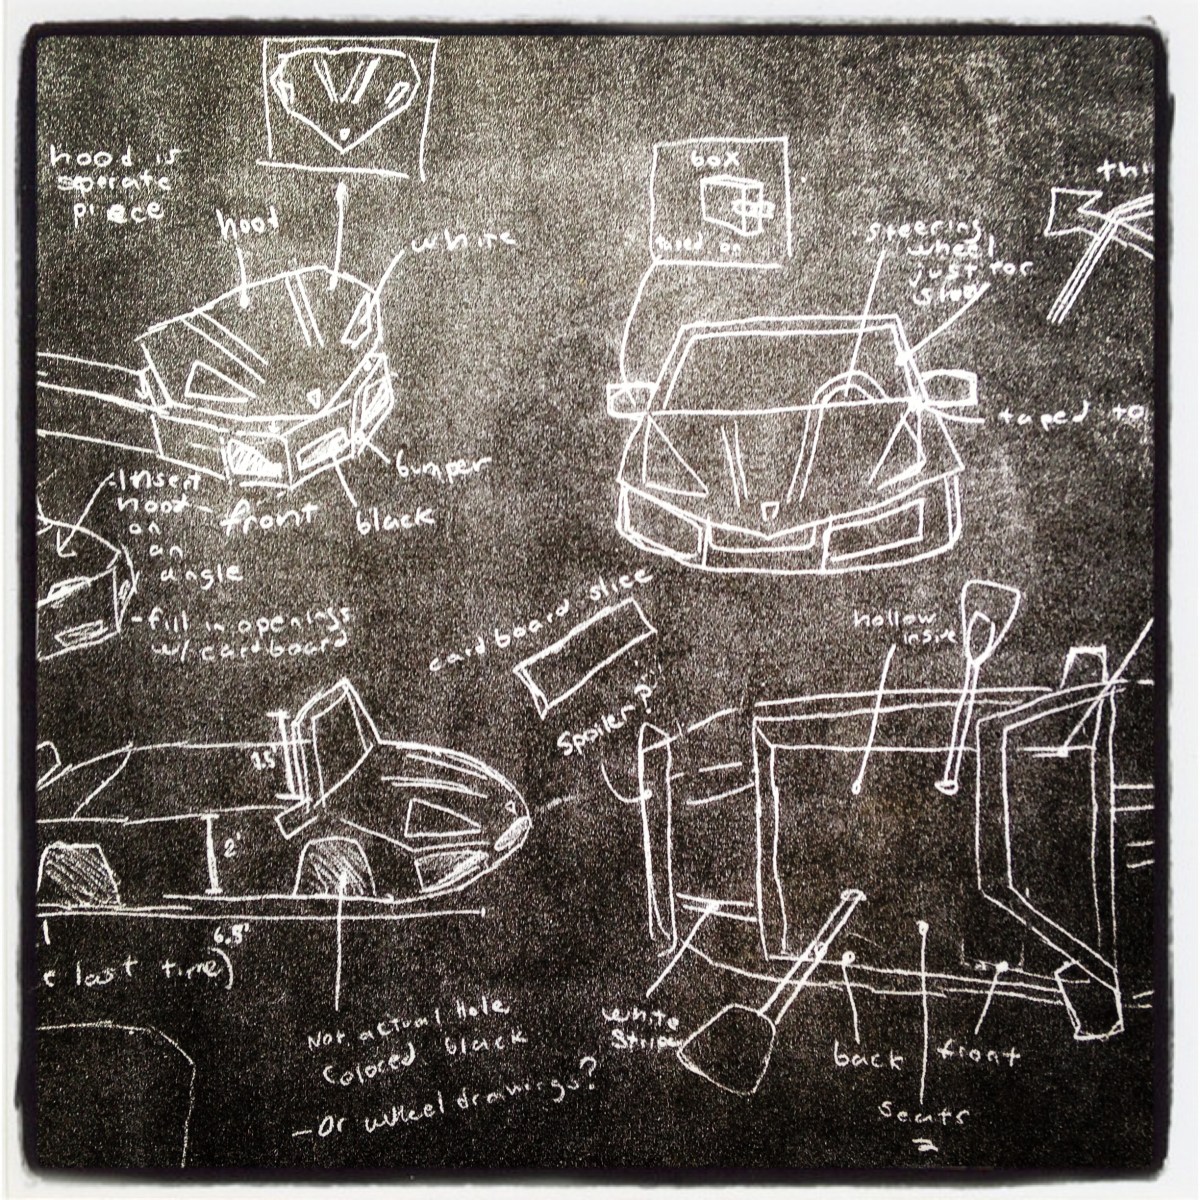 hood is
seperate
piece
hood
white
box
taped on
steering
wheel
just for
show
thi
taped to
bumper
- Insert
hood
on
an
angle
front
black
- fill in openings
w/ cardboard
cardboard slice
spoiler?
hollow
inside
1.5'
2'
6.5'
e last time)
Not actual Hole
Colored black
- Or wheel drawings?
white
Stripe
back
front
seats
2